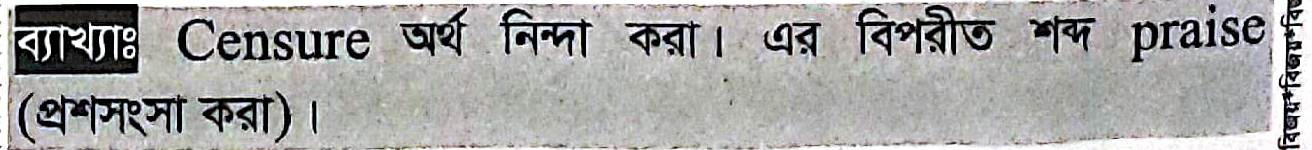 ব্যাখ্যাঃ Censure অর্থ নিন্দা করা। এর বিপরীত শব্দ praise
(প্রশসংসা করা)।
বিজয়*বিজয়*বিজ